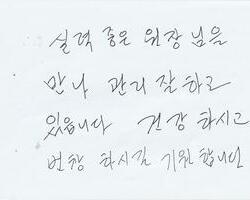 실력 좋은 원장님을
만나 관리 잘하고
있읍니다 건강 하시고
번창 하시길 기원합니다